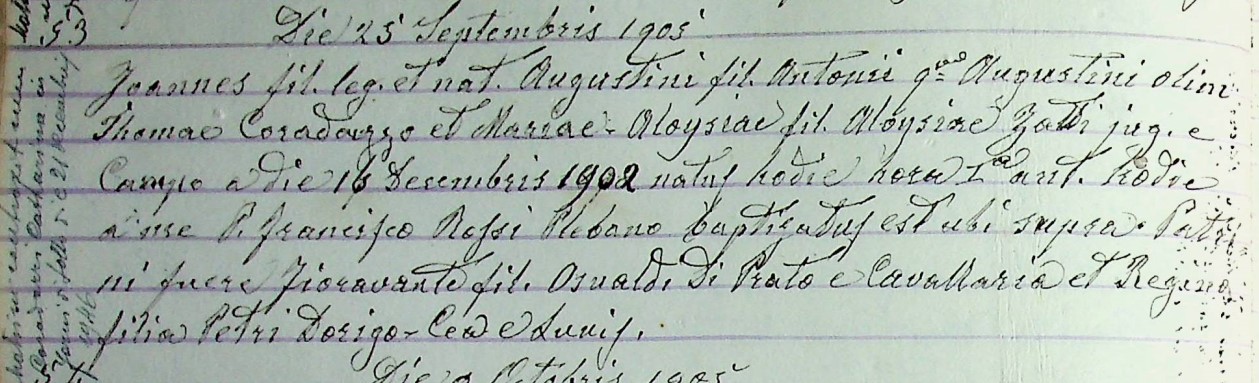 Die 25 Septembris 1905
Joannes fil. leg. et nat. Augustini fil. Antonii qm Augustini olim
Thomae Coradazzo et Mariae-Aloysiae fil. Aloysiae Zatti jug. e
Campo a die 16 Decembris 1902 natus hodie hora 1a ant. hodie
a me P. Francisco Rossi Plebano baptizatus est ubi supra. Patri
ni fuere Fioravante fil. Osvaldi Di Prato e Cavallaria et Regina
filia Petri Dorigo-Cea e Luniis.
Die 2 Octobris 1905
53
matrimonium
Coradazzi Catharina
die 21 decembris
1946